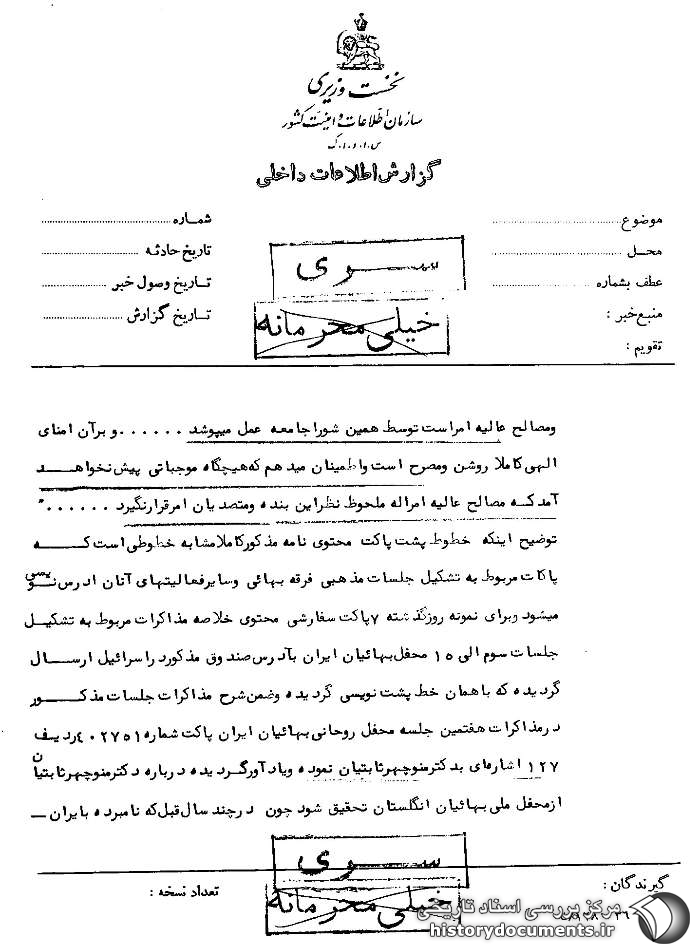 نخست وزیری
سازمان اطلاعات و امنیت کشور
س.ا.و.ا.ک
گزارش اطلاعات داخلی
موضوع
شماره
محل
تاریخ حادثه
عطف بشماره
تاریخ وصول خبر
منبع خبر :
تاریخ گزارش
تقویم :
سری
خیلی محرمانه
ومصالح عالیه امراست توسط همین شوراجامعه عمل میپوشد ...... و برآن امنای
الهی کاملا روشن ومصرح است واطمینان میدهم که هیچگاه موجباتی پیش نخواهد
آمدکه مصالح عالیه امراله ملحوظ نظراین بنده ومتصدیان امرقرارنگیرد ......"
توضیح اینکه خطوط پشت پاکت محتوی نامه مذکورکاملامشابه خطوطی است که
پاکات مربوط به تشکیل جلسات مذهبی فرقه بهائی وسایرفعالیتهای آنان ادرس نویسی
میشود وبرای نمونه روزگذشته ۷ پاکت سفارشی محتوی خلاصه مذاکرات مربوط به تشکیل
جلسات سوم الی ۱۵ محفل بهائیان ایران بآدرس صندوق مذکوردراسرائیل ارسال
گردیده که باهمان خط پشت نویسی گردیده وضمن شرح مذاکرات جلسات مذکور
درمذاکرات هفتمین جلسه محفل روحانی بهائیان ایران پاکت شماره ۴۰۲۷۵۱ ردیف
۱۲۷ اشاره‌ای بدکترمنوچهرثابتیان نموده ویادآورگردیده درباره دکترمنوچهرثابتیان
ازمحفل ملی بهائیان انگلستان تحقیق شود چون درچند سال قبل که نامبرده بایران ـ
سری
گیرندگان :
تعداد نسخه :
خیلی محرمانه
مرکز بررسی اسناد تاریخی
historydocuments.ir